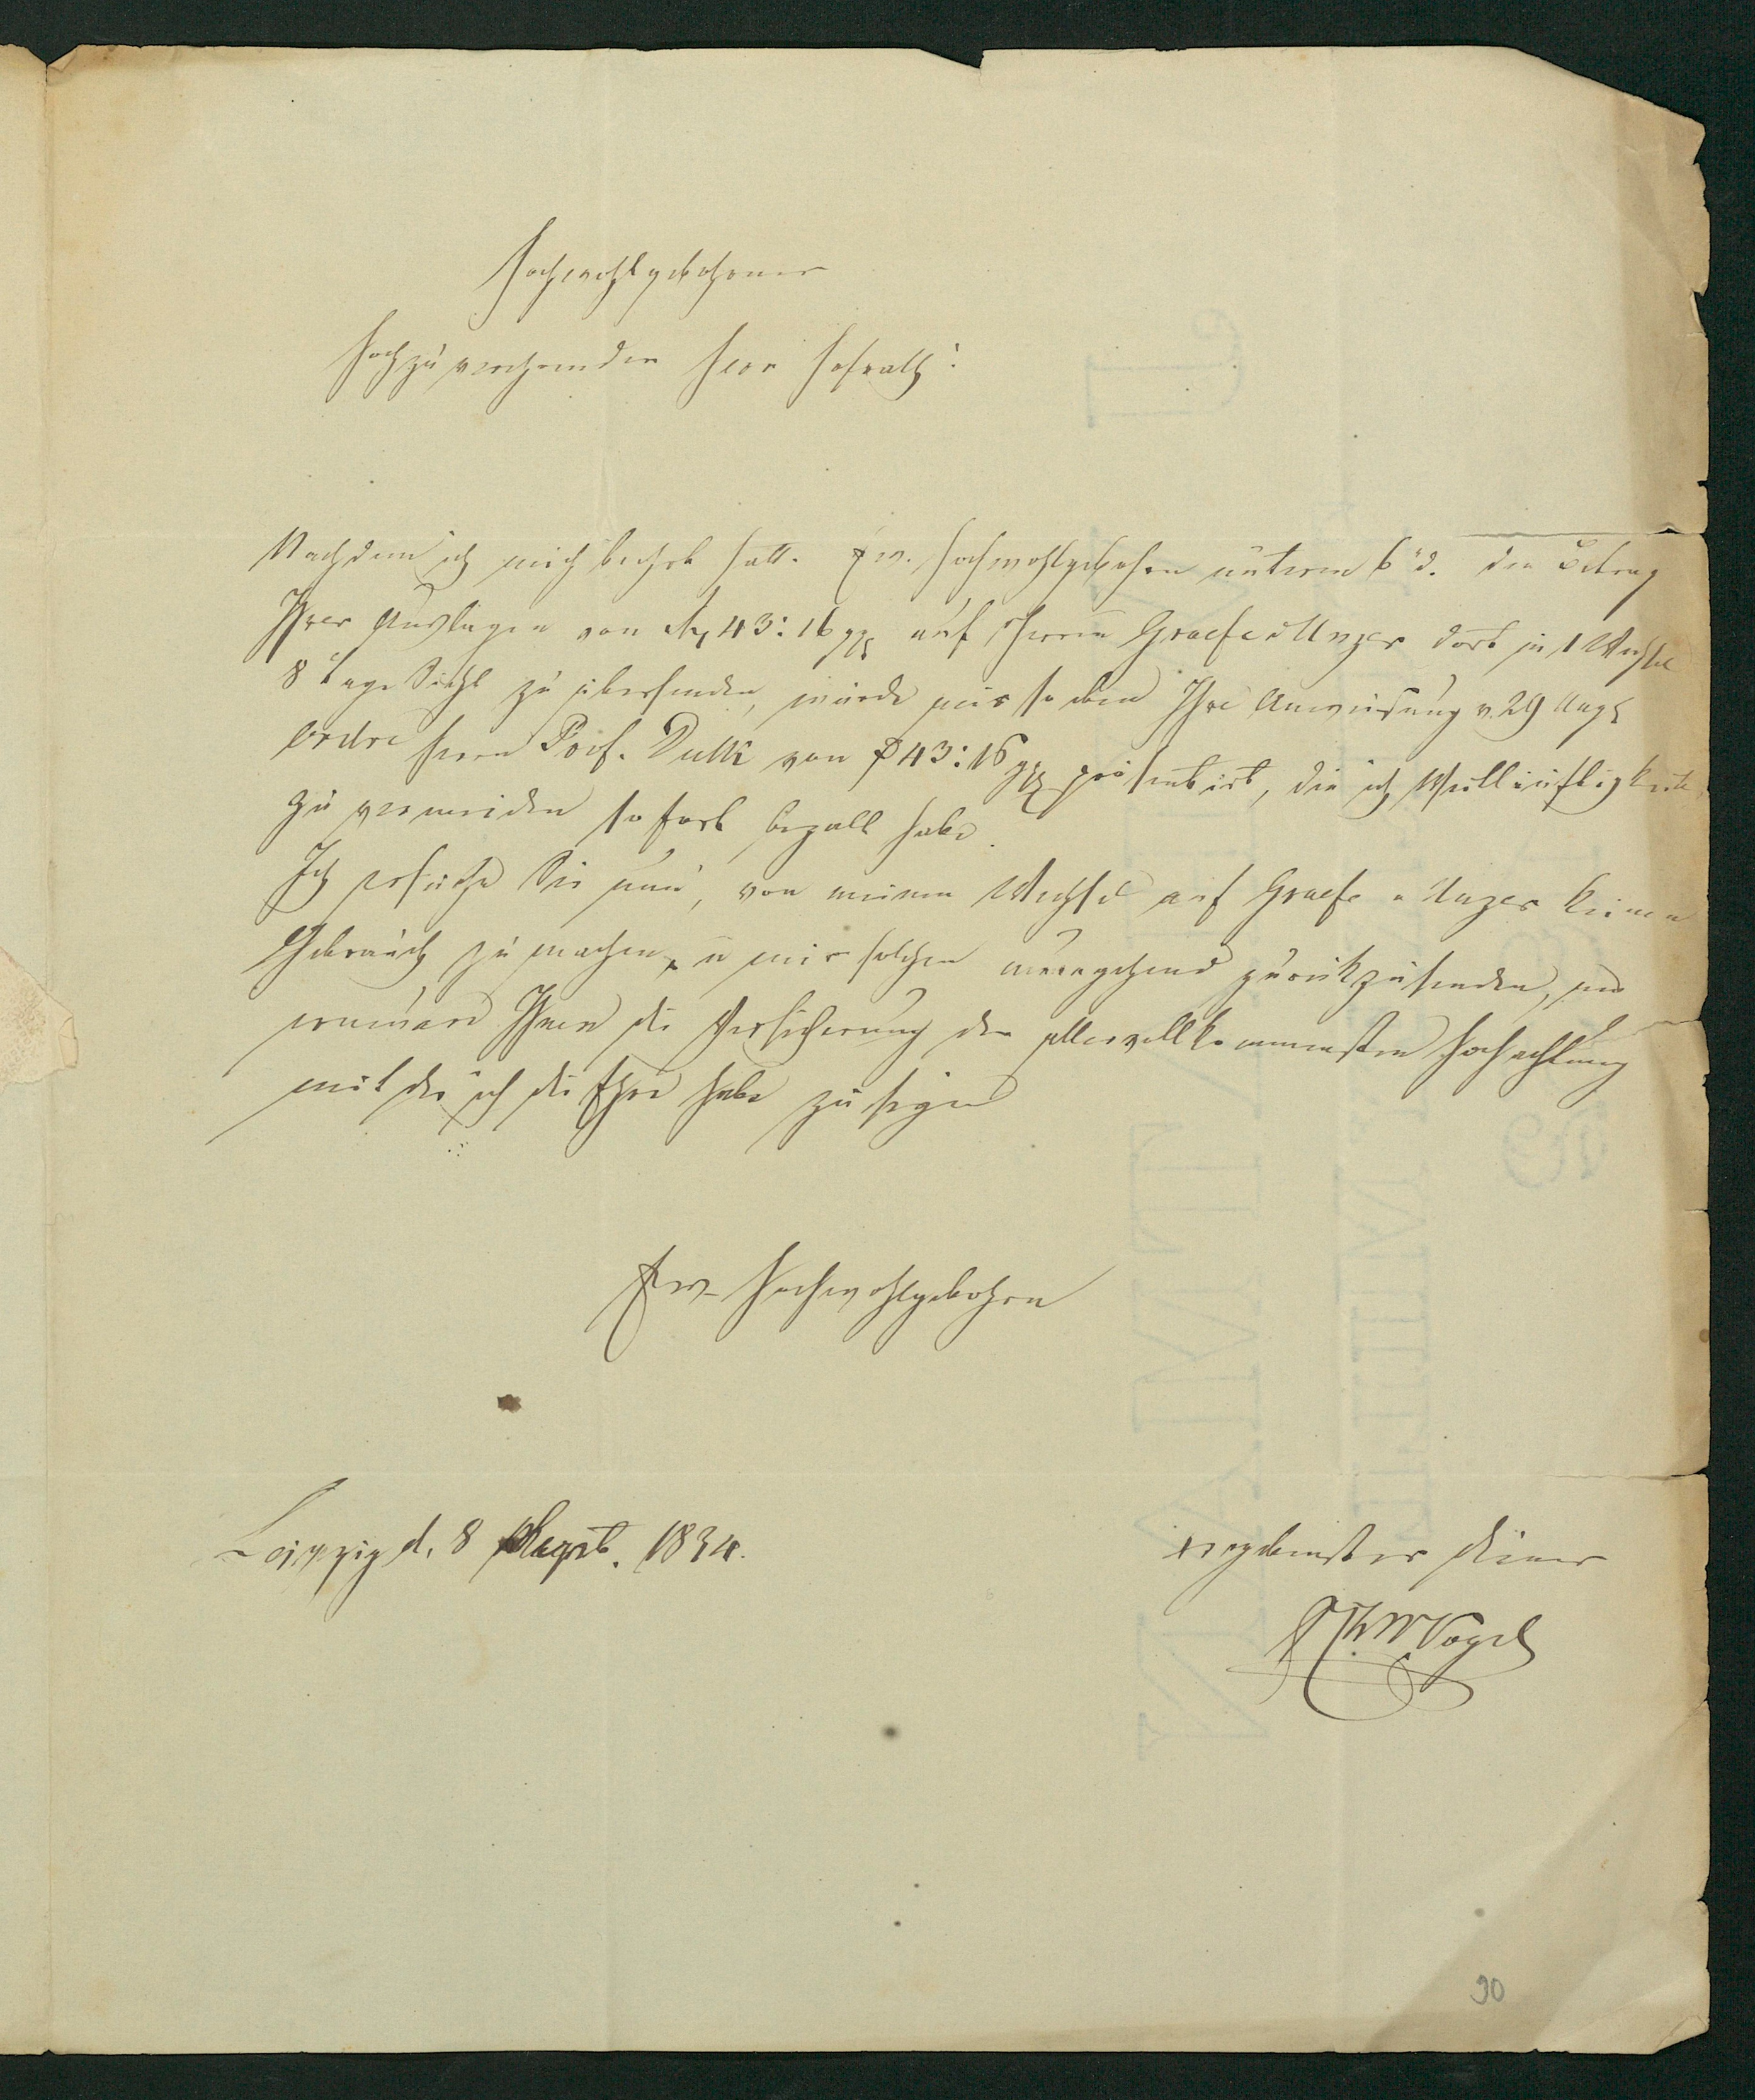 Hochwohlgebohrner
Hochzuverehrender Herr Hofrath!
Nachdem ich mich beehrt hatte Ew. Hochwohlgebohren unterm 6 d. den Betrag
Ihrer Auslagen von 43:16 gg auf Herrn Graefe & Unzer dort in 1 Wechsel
8 Tage Sicht zu übersenden, wurde mir so eben Ihre Anweisung v. 29 Aug
Ordre Herrn Prof. Dulk von 43:16 gg präsentirt, die ich Weitläuftigkeiten
zu vermeiden sofort bezalt habe.
Ich ersuche Sie nun, von meinem Wechsel auf Graefe u Unzer keinen
Gebrauch zu machen, u mir solchen umgehend zurückzusenden, und
erneuere Ihnen die Versicherung der allervollkommensten Hochachtung
mit der ich die Ehre habe zu seyn
Ew. Hochwohlgebohren
Leipzig d. 8 1834.
ergebenster Diener
Vogel
90